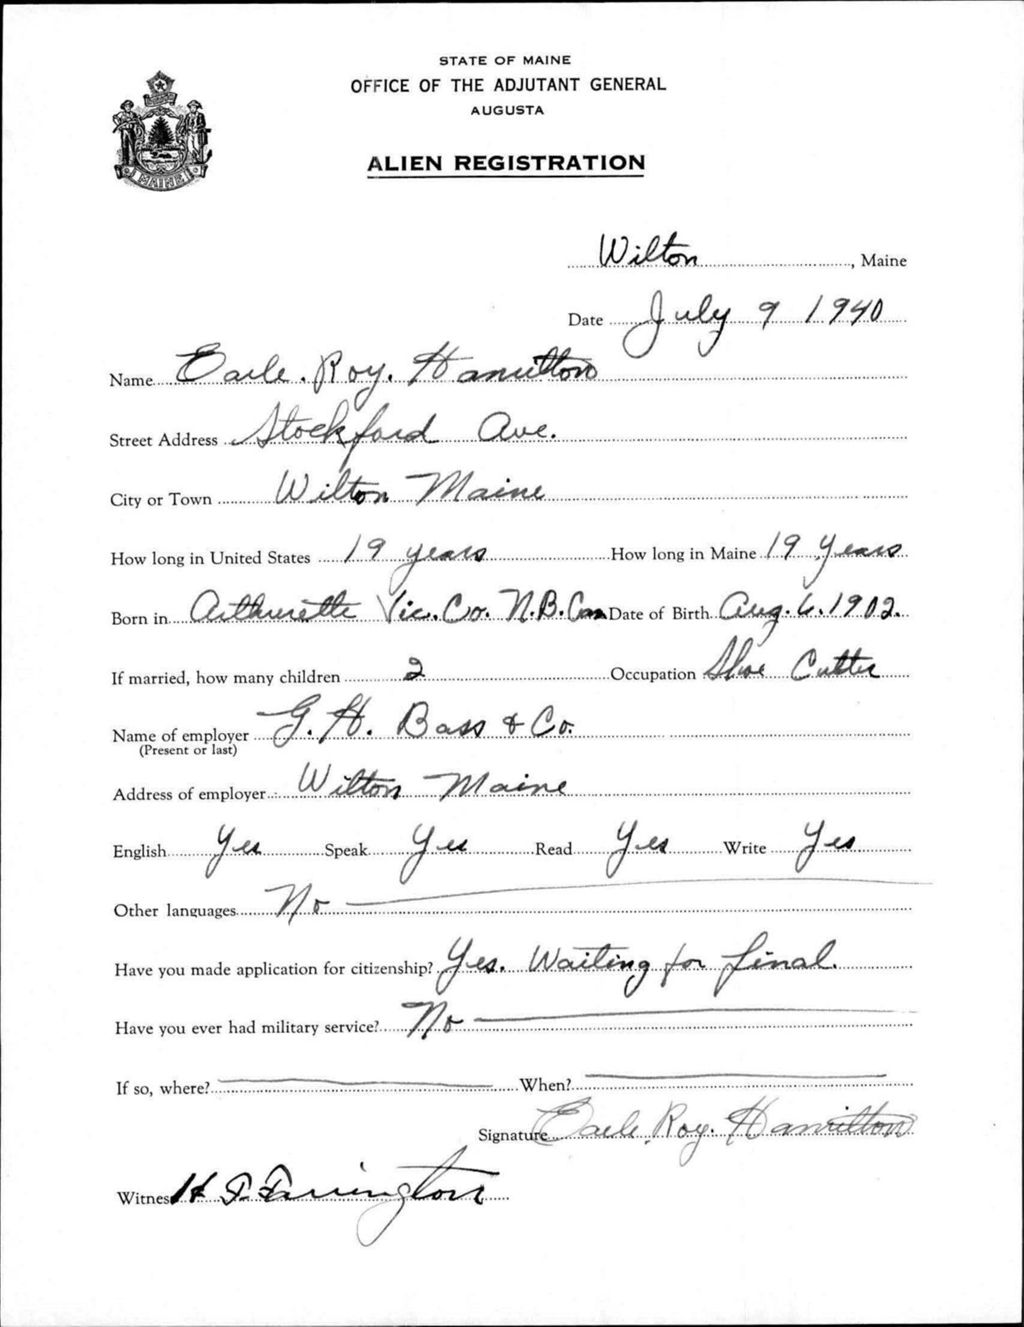 STATE OF MAINE
OFFICE OF THE ADJUTANT GENERAL
AUGUSTA
ALIEN REGISTRATION
MAINE
Wilton, Maine
Date July 9 1940
Name Earle. Roy. Hamilton
Street Address Stockford Ave.
City or Town Wilton Maine
How long in United States 19 years How long in Maine 19 years
Born in Arthurette Vic. Co. N.B. Can Date of Birth Aug. 6. 1902.
If married, how many children 2 Occupation Shoe Cutter
Name of employer G. H. Bass & Co.
(Present or last)
Address of employer Wilton Maine
English Yes Speak Yes Read Yes Write Yes
Other languages No
Have you made application for citizenship? Yes. Waiting for final.
Have you ever had military service? No
If so, where? When?
Signature Earle. Roy. Hamilton
Witness H T Farrington